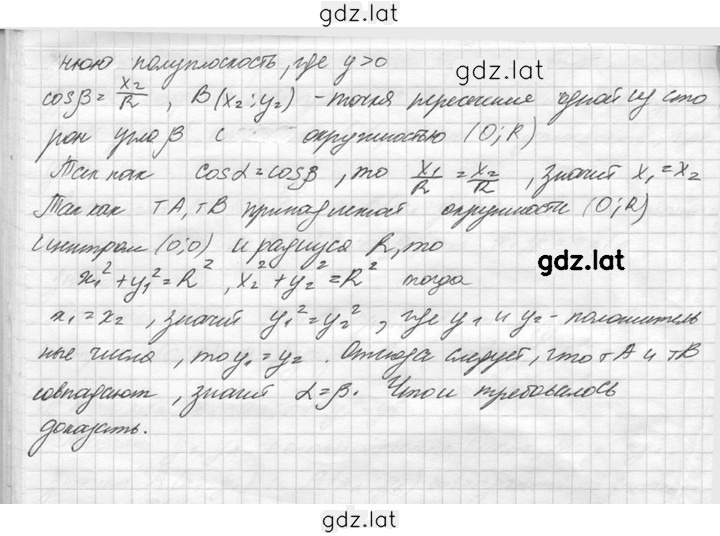 gdz.lat
нюю полуплоскость, где y>0
gdz.lat
cosβ = x₂/R , B(x₂; y₂) - точка пересечения одной из сто
рон угла β с окружностью (O; R)
Так как cosα = cosβ , то x₁/R = x₂/R , значит x₁ = x₂
Так как т A, т B принадлежат окружности (O; R)
с центром (0; 0) и радиуса R, то
gdz.lat
x₁² + y₁² = R² , x₂² + y₂² = R² тогда
x₁ = x₂ , значит y₁² = y₂² , где y₁ и y₂ - положитель
ные числа , то y₁ = y₂ . Отсюда следует, что т A и т B
совпадают , значит α = β. Что и требовалось
доказать.
gdz.lat